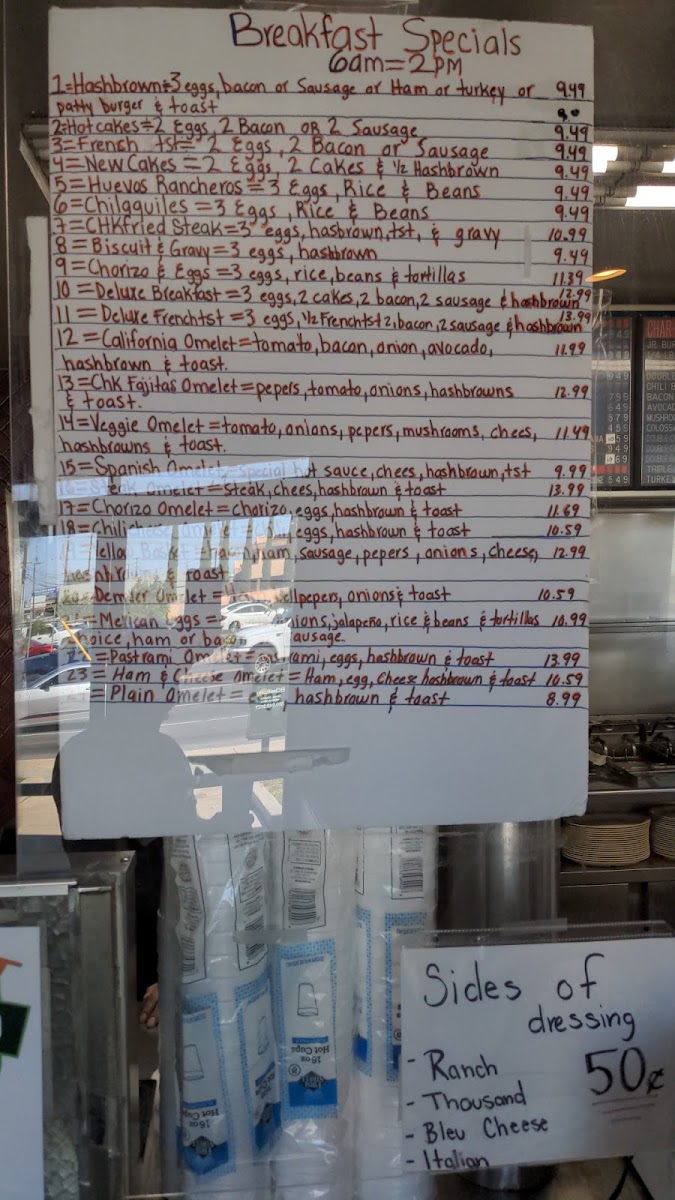 Breakfast Specials
6am=2PM
1=Hashbrown=3 eggs, bacon or Sausage or Ham or turkey or 9.49
patty burger & toast
2=Hotcakes=2 Eggs, 2 Bacon OR 2 Sausage 9.49
3=French tst= 2 Eggs, 2 Bacon or Sausage 9.49
4=New Cakes=2 Eggs, 2 Cakes & ½ Hashbrown 9.49
5=Huevos Rancheros=3 Eggs, Rice & Beans 9.49
6=Chilaquiles=3 Eggs, Rice & Beans 9.49
7=CHKfried Steak=3 eggs, hasbrown, tst, & gravy 10.99
8=Biscuit & Gravy=3 eggs, hashbrown 9.49
9=Chorizo & Eggs=3 eggs, rice, beans & tortillas 11.39
10=Deluxe Breakfast=3 eggs, 2 cakes, 2 bacon, 2 sausage & hashbrown 12.99
11=Deluxe Frenchtst=3 eggs, ½ Frenchtst 2, bacon, 2 sausage & hashbrown 13.99
12=California Omelet=tomato, bacon, onion, avocado, 11.99
hashbrown & toast.
13=Chk Fajitas Omelet=pepers, tomato, onions, hashbrowns 12.99
& toast.
14=Veggie Omelet=tomato, onions, pepers, mushrooms, chees, 11.49
hashbrowns & toast.
15=Spanish Omelet=special hot sauce, chees, hashbrown, tst 9.99
16=Steak Omelet=steak, chees, hashbrown & toast 13.99
17=Chorizo Omelet=chorizo, eggs, hashbrown & toast 11.69
18=Chilicheese Omelet= eggs, hashbrown & toast 10.59
ham, sausage, pepers, onions, cheese, 12.99
& toast
Omelet= bellpepers, onions & toast 10.59
=Mexican Eggs= onions, jalapeño, rice & beans & tortillas 10.99
choice, ham or bacon sausage.
=Pastrami Omelet=pastrami, eggs, hashbrown & toast 13.99
23=Ham & Cheese Omelet=Ham, egg, cheese hashbrown & toast 10.59
=Plain Omelet= hashbrown & toast 8.99
CHAR
JR. BUR
CHILI B
BACON
AVOCAD
MUSHRO
COLOSS
DOUBLE
TRIPLE
TURKEY
16oz
Hot Cups
16oz
Hot Cups
Sides of
dressing
50¢
- Ranch
- Thousand
- Bleu Cheese
- Italian